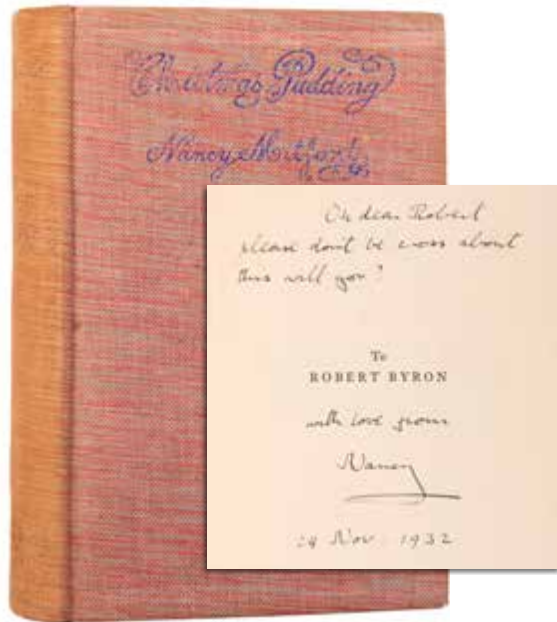 Christmas Pudding
Nancy Mitford
Oh dear Robert
please don't be cross about
this will you?
To
ROBERT BYRON
with love from
Nancy
Nov. 1932